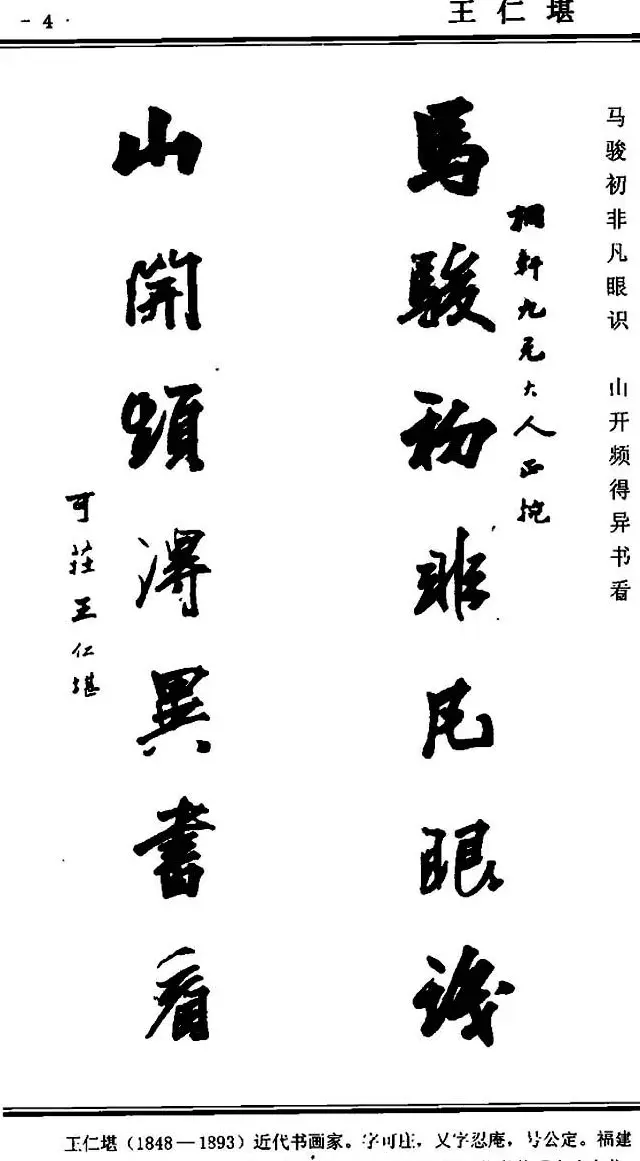 - 4 ·
王仁堪
马骏初非凡眼识 山开频得异书看
馬駿初非凡眼識
桐轩九兄大人正腕
山開頻得異書看
可莊王仁堪
王仁堪（1848—1893）近代书画家。字可庄，又字忍庵，号公定。福建